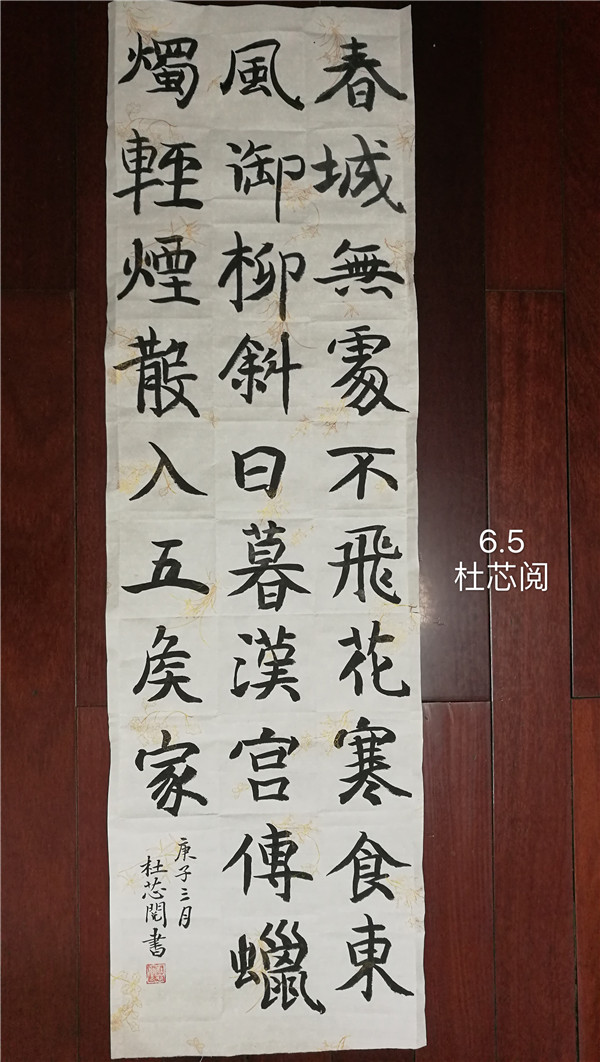 春城無處不飛花寒食東
風御柳斜日暮漢宮傳蠟
燭輕煙散入五侯家
庚子三月
杜芯閱書
6.5
杜芯阅